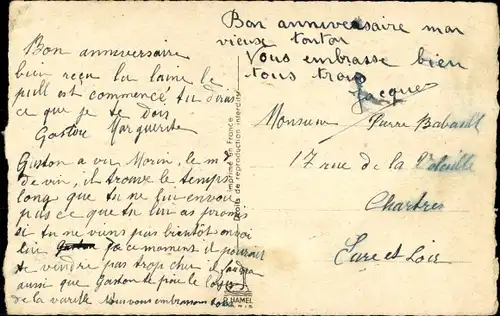 Bon anniversaire mon
vieux tonton
Vous embrasse bien
tous trois
Jacques
Bon anniversaire
bien reçu la laine le
pull est commencé tu diras
ce que je te dois
Gaston Marguerite
Gaston a vu Morin, le md
de vin, il trouve le temps
long que tu ne lui envoie
pas ce que tu lui as promis
si tu ne viens pas bientôt envoi
lui Gaston ce moment il pourrait
te vendre pas trop cher il faudra
aussi que Gaston te paie le
de la nous vous embrassons tous
Imprimé en France
Droits de reproduction interdits
Monsieur Pierre Babault
17 rue de la
Chartres
Eure et Loir
HAMEL